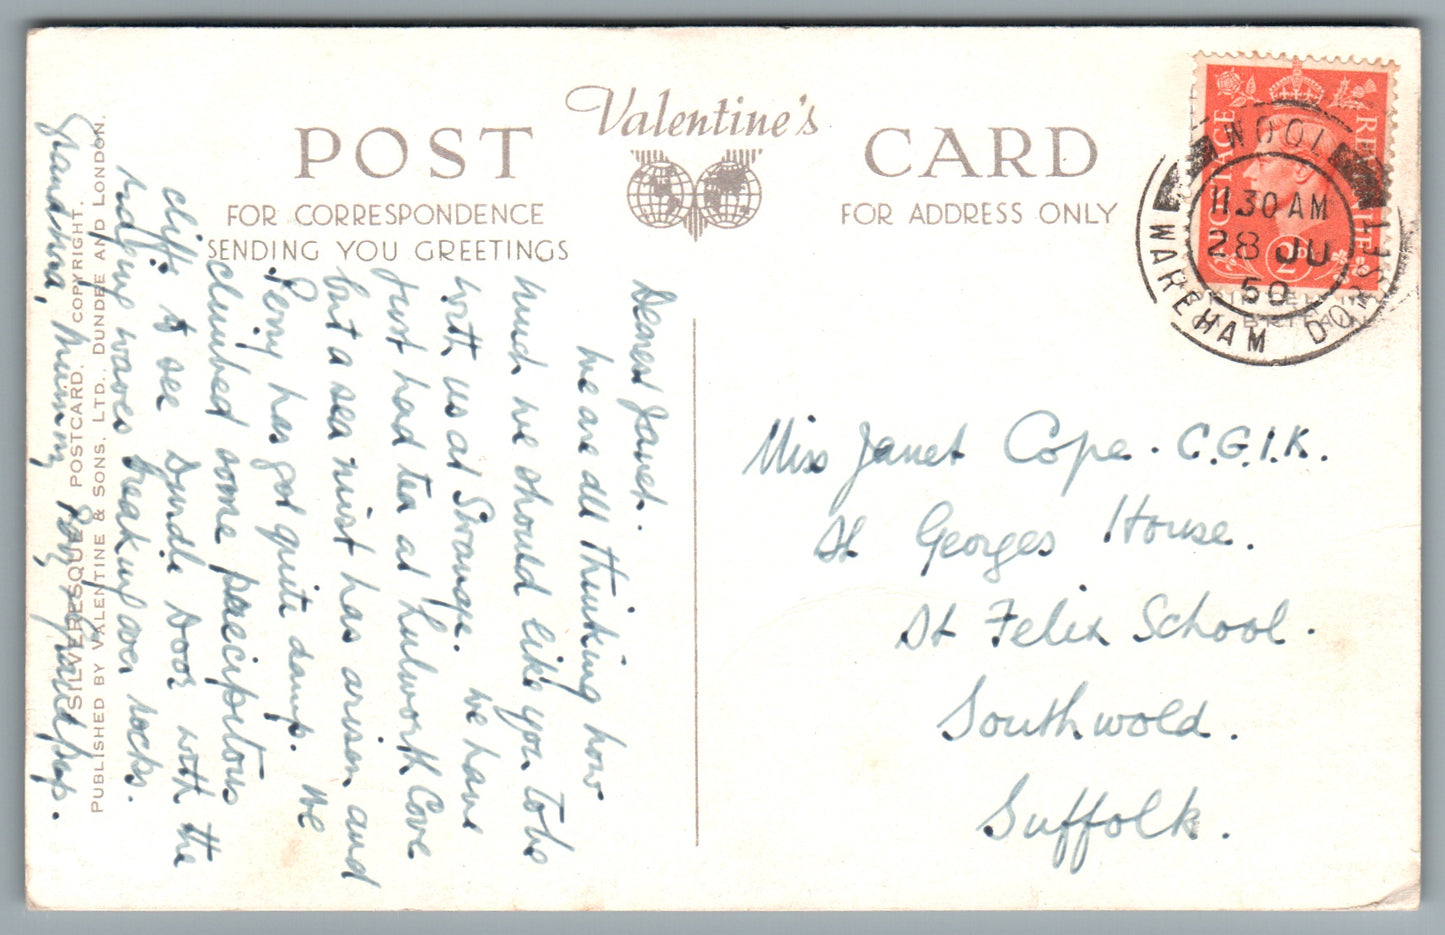 Valentine's
POST CARD
FOR CORRESPONDENCE
SENDING YOU GREETINGS
FOR ADDRESS ONLY
POSTAGE REVENUE
2D
WOOL
11.30 AM
28 JU
50
WAREHAM DORSET
Dearest Janet.
We are all thinking how
much we should like you to be
with us at Swanage. We have
just had tea at Lulworth Cove
but a sea mist has arisen and
Perry has got quite damp. We
climbed some precipitous
cliffs to see Durdle Door with the
indigo waves breaking over rocks.
Grandma, Mummy,
Miss Janet Cope. C.G.I.K.
St Georges House.
St Felix School.
Southwold.
Suffolk.
"SILVERESQUE" POSTCARD. COPYRIGHT.
PUBLISHED BY VALENTINE & SONS, LTD., DUNDEE AND LONDON.